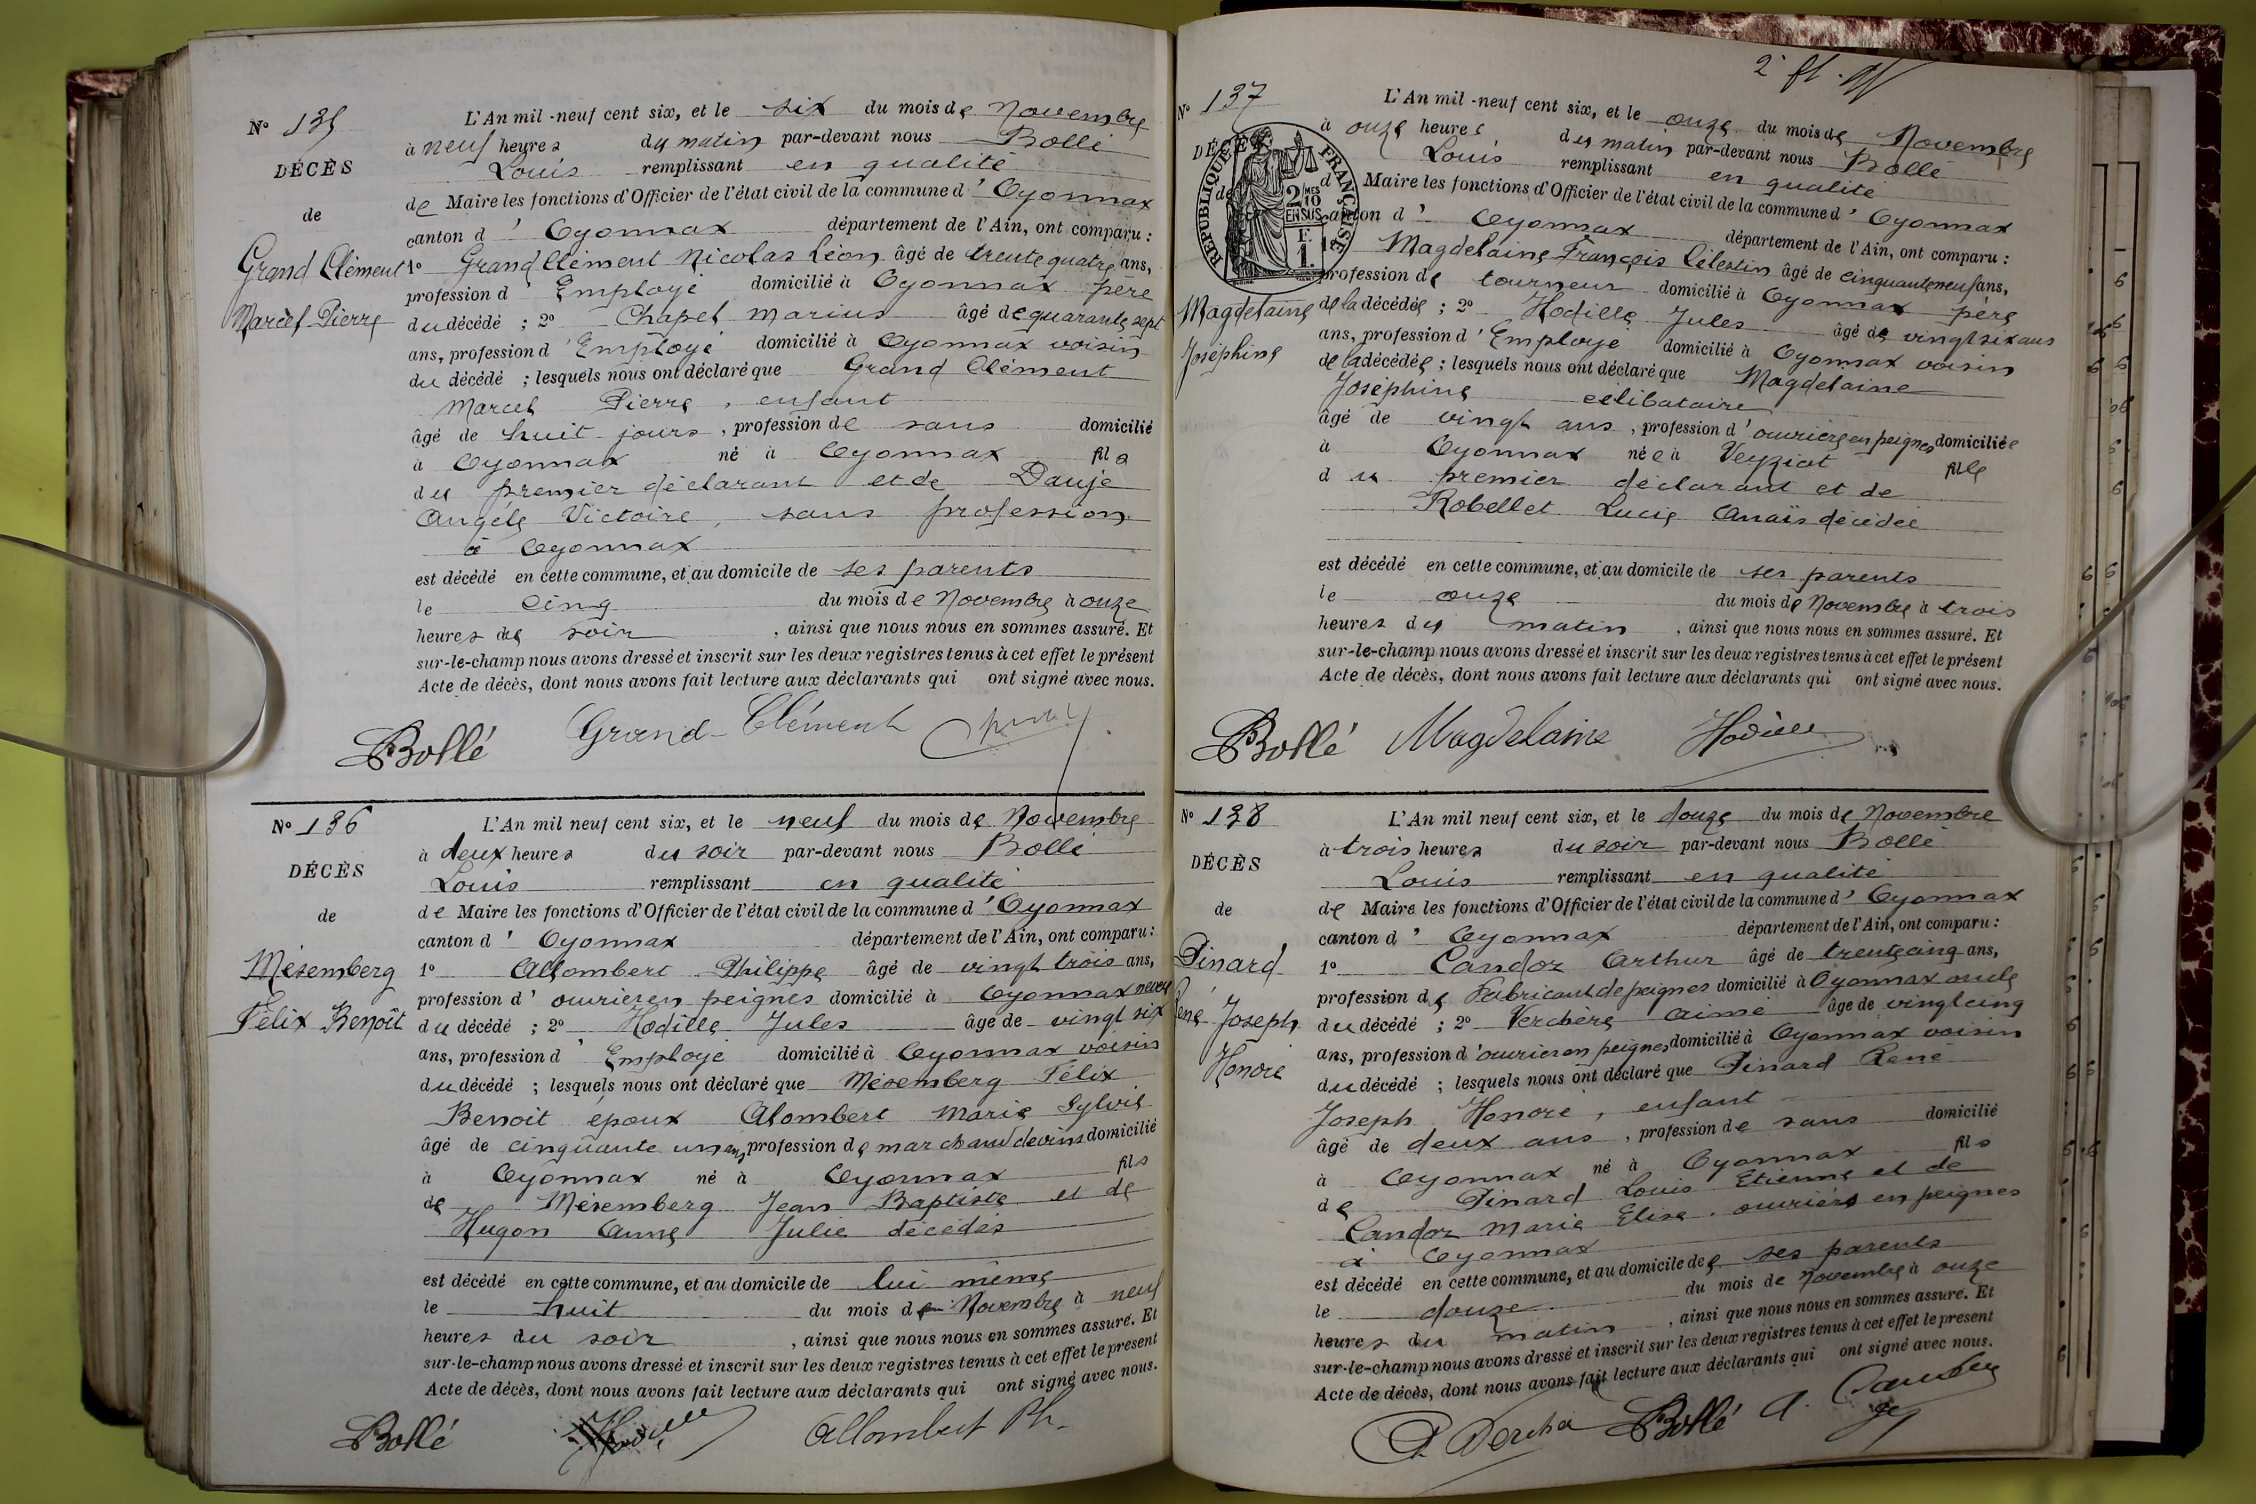 Nº 135
DÉCÈS
de
Grand Clément
Marcel Pierre
L'An mil-neuf cent six, et le six du mois de Novembre
à neuf heures du matin par-devant nous Bollé
Louis remplissant en qualité
de Maire les fonctions d'Officier de l'état civil de la commune d'Oyonnax
canton d'Oyonnax département de l'Ain, ont comparu :
1º Grand Clément Nicolas Léon âgé de trente quatre ans,
profession d'Employé domicilié à Oyonnax père
du décédé ; 2º Chapel Marius âgé de quarante sept
ans, profession d'Employé domicilié à Oyonnax voisin
du décédé ; lesquels nous ont déclaré que Grand Clément
Marcel Pierre, enfant
âgé de huit jours, profession de sans domicilié
à Oyonnax né à Oyonnax fils
du premier déclarant et de Daujé
Angèle Victoire, sans profession
à Oyonnax
est décédé en cette commune, et au domicile de ses parents
le cinq du mois de Novembre à onze
heures du soir, ainsi que nous nous en sommes assuré. Et
sur-le-champ nous avons dressé et inscrit sur les deux registres tenus à cet effet le présent
Acte de décès, dont nous avons fait lecture aux déclarants qui ont signé avec nous.
Bollé Grand-Clément
Nº 136
DÉCÈS
de
Mésemberg
Félix Benoît
L'An mil neuf cent six, et le neuf du mois de Novembre
à deux heures du soir par-devant nous Bollé
Louis remplissant en qualité
de Maire les fonctions d'Officier de l'état civil de la commune d'Oyonnax
canton d'Oyonnax département de l'Ain, ont comparu :
1º Allombert Philippe âgé de vingt trois ans,
profession d'ouvrier en peignes domicilié à Oyonnax neveu
du décédé ; 2º Hodille Jules âgé de vingt six
ans, profession d'Employé domicilié à Oyonnax voisin
du décédé ; lesquels nous ont déclaré que Mésemberg Félix
Benoit époux Alombert Marie Sylvie
âgé de cinquante un ans, profession de marchand de vins domicilié
à Oyonnax né à Oyonnax fils
de Mésemberg Jean Baptiste et de
Hugon Anne Julie décédés
est décédé en cette commune, et au domicile de lui même
le huit du mois de Novembre à neuf
heures du soir, ainsi que nous nous en sommes assuré. Et
sur-le-champ nous avons dressé et inscrit sur les deux registres tenus à cet effet le présent
Acte de décès, dont nous avons fait lecture aux déclarants qui ont signé avec nous.
Bollé Hodille Allombert Ph.
Nº 137
DÉCÈS
de
RÉPUBLIQUE FRANÇAISE
2/10 MES
EN SUS
F.
1.
Magdelaine
Joséphine
L'An mil-neuf cent six, et le onze du mois de Novembre
à onze heures du matin par-devant nous Bollé
Louis remplissant en qualité
d Maire les fonctions d'Officier de l'état civil de la commune d'Oyonnax
canton d'Oyonnax département de l'Ain, ont comparu :
Magdelaine François Célestin âgé de cinquante neuf ans,
profession de tourneur domicilié à Oyonnax père
de la décédée ; 2º Hodille Jules âgé de vingt six ans
ans, profession d'Employé domicilié à Oyonnax voisin
de la décédée ; lesquels nous ont déclaré que Magdelaine
Joséphine célibataire
âgé de vingt ans, profession d'ouvrière en peignes domiciliée
à Oyonnax née à Veyziat fille
du premier déclarant et de
Robellet Lucie Anaïs décédée
est décédé en cette commune, et au domicile de ses parents
le onze du mois de Novembre à trois
heures du matin, ainsi que nous nous en sommes assuré. Et
sur-le-champ nous avons dressé et inscrit sur les deux registres tenus à cet effet le présent
Acte de décès, dont nous avons fait lecture aux déclarants qui ont signé avec nous.
Bollé Magdelaine Hodille
Nº 138
DÉCÈS
de
Pinard
René Joseph
Honoré
L'An mil neuf cent six, et le douze du mois de Novembre
à trois heures du soir par-devant nous Bollé
Louis remplissant en qualité
de Maire les fonctions d'Officier de l'état civil de la commune d'Oyonnax
canton d'Oyonnax département de l'Ain, ont comparu :
1º Candor Arthur âgé de trente cinq ans,
profession de Fabricant de peignes domicilié à Oyonnax oncle
du décédé ; 2º Verchère Aimé âgé de vingt cinq
ans, profession d'ouvrier en peignes domicilié à Oyonnax voisin
du décédé ; lesquels nous ont déclaré que Pinard René
Joseph Honoré, enfant
âgé de deux ans, profession de sans domicilié
à Oyonnax né à Oyonnax fils
de Pinard Louis Etienne et de
Candor Marie Elise, ouvriers en peignes
à Oyonnax
est décédé en cette commune, et au domicile de ses parents
le douze du mois de Novembre à onze
heures du matin, ainsi que nous nous en sommes assuré. Et
sur-le-champ nous avons dressé et inscrit sur les deux registres tenus à cet effet le présent
Acte de décès, dont nous avons fait lecture aux déclarants qui ont signé avec nous.
Bollé